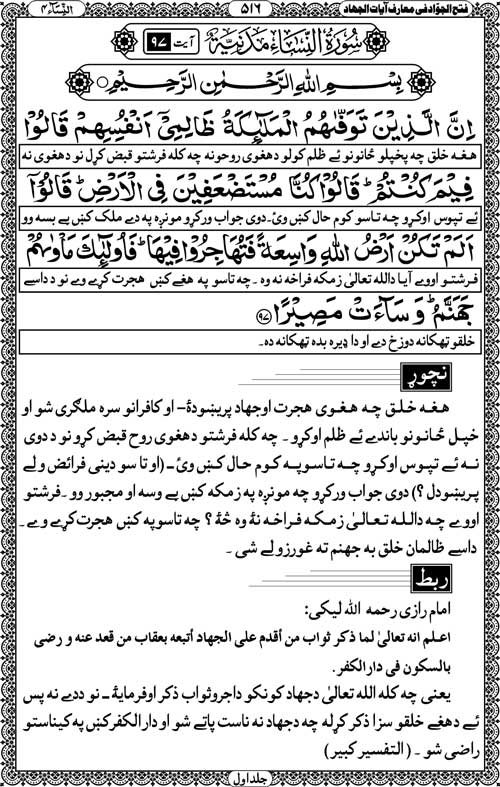 فتح الجوّاد فی معارف آیات الجهاد
۵۱۶
النِّسَآء ۴
سُوْرَةُ النِّسَاءِ مَدَنِيَّةٌ آیت ۹۷
بِسْمِ اللهِ الرَّحْمٰنِ الرَّحِيْمِ
اِنَّ الَّذِيْنَ تَوَفّٰىهُمُ الْمَلٰٓئِكَةُ ظَالِمِيْٓ اَنْفُسِهِمْ قَالُوْا
هغه خلق چه پخپلو ځانونو ئے ظلم کولو دهغوی روحونه چه کله فرشتو قبض کړل نو دهغوی نه
فِيْمَ كُنْتُمْ ؕ قَالُوْا كُنَّا مُسْتَضْعَفِيْنَ فِي الْاَرْضِ ؕ قَالُوْٓا
ئے تپوس اوکړو چه تاسو کوم حال کښ وئ۔ دوی جواب ورکړو مونږه په دے ملک کښ بے بسه وو
اَلَمْ تَكُنْ اَرْضُ اللهِ وَاسِعَةً فَتُهَاجِرُوْا فِيْهَا ؕ فَاُولٰٓئِكَ مَاْوٰىهُمْ
فرشتو اووے آیا دالله تعالیٰ زمکه فراخه نه وه ۔ چه تاسو په هغے کښ هجرت کړے وے نو د داسے
جَهَنَّمُ ؕ وَ سَآءَتْ مَصِيْرًا ۙ ۹۷
خلقو ټهکانه دوزخ دے او دا ډیره بده ټهکانه ده۔
نچوړ
هغه خلق چه هغوی هجرت اوجهاد پریښودۀ۔ او کافرانو سره ملګری شو او
خپل ځانونو باندے ئے ظلم اوکړو ۔ چه کله فرشتو دهغوی روح قبض کړو نو د دوی
نه ئے تپوس اوکړو چه تاسو په کوم حال کښ وئ۔ (او تا سو دینی فرائض ولے
پریښودل ؟) دوی جواب ورکړو چه مونږه په زمکه کښ بے وسه او مجبور وو ۔ فرشتو
اووے چه دالله تعالیٰ زمکه فراخه نۀ وه څۀ ؟ چه تاسو په کښ هجرت کړے وے۔
داسے ظالمان خلق به جهنم ته غورزولے شی ۔
ربط
امام رازی رحمه الله لیکی:
اعلم انه تعالیٰ لما ذکر ثواب من أقدم علی الجهاد أتبعه بعقاب من قعد عنه و رضی
بالسکون فی دار الکفر.
یعنی چه کله الله تعالیٰ دجهاد کونکو داجروثواب ذکر اوفرمایۀ ۔ نو ددے نه پس
ئے دهغے خلقو سزا ذکر کړله چه دجهاد نه ناست پاتے شو او دارالکفر کښ په کیناستو
راضی شو ۔ (التفسیر کبیر)
جلد اول